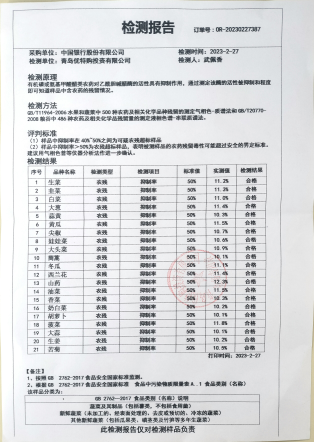 检测报告
订单号: OR-20230227387
采购单位: 中国银行股份有限公司 检测时间: 2023-2-27
检测单位: 青岛优特购投资有限公司 检测人员: 武佩香
检测原理
有机磷或氨基甲酸酯类农药对乙酰胆碱酯酶的活性具有抑制作用，通过测定该酶的活性被抑制和程度
即可知道样品中含农药的残留情况。
检测方法
GB/T19648-2006 水果和蔬菜中 500 种农药及相关化学品种残留的测定气相色-质谱法和 GB/T20770-
2008
评判标准
(1) 样品中抑制率在 40%~50%之间为可疑农残超标样品
(2) 样品中抑制率>50%为农残超标样品，表明被测样品的农药残留毒性可能超过安全的界定标准。
建议用气相色谱等仪器分析法作进一步确认。
检测结果
序号 品种名称 检测类型 检测项目 标准值 实测值 检测结果
1 生菜 农残 抑制率 50% 11.2% 合格
2 韭菜 农残 抑制率 50% 11.3% 合格
3 白菜 农残 抑制率 50% 11.0% 合格
4 大葱 农残 抑制率 50% 11.4% 合格
5 蒜黄 农残 抑制率 50% 10.3% 合格
6 黄瓜 农残 抑制率 50% 11.5% 合格
7 尖椒 农残 抑制率 50% 10.7% 合格
8 娃娃菜 农残 抑制率 50% 10.6% 合格
9 大头菜 农残 抑制率 50% 10.9% 合格
10 茼蒿 农残 抑制率 50% 10.1% 合格
11 冬瓜 农残 抑制率 50% 11.1% 合格
12 西兰花 农残 抑制率 50% 11.4% 合格
13 山药 农残 抑制率 50% 12.3% 合格
14 油菜 农残 抑制率 50% 11.5% 合格
15 香菜 农残 抑制率 50% 10.3% 合格
16 奶白菜 农残 抑制率 50% 10.2% 合格
17 胡萝卜 农残 抑制率 50% 10.1% 合格
18 菠菜 农残 抑制率 50% 11.8% 合格
19 大蒜 农残 抑制率 50% 10.1% 合格
20 生姜 农残 抑制率 50% 10.2% 合格
21 苦菊 农残 抑制率 50% 10.5% 合格
打印时间: 2023-2-27
【备注】
1、按照 GB 2762-2017 食品安全国家标准监测。
2、根据 GB 2762-2017 食品安全国家标准 食品中污染物嵌限量表 A.1 食品类别（名称）
该样品分类为:
GB 2762—2017 食品类别（名称）说明
蔬菜及其制品（包括薯类，不包括食用菌）
新鲜蔬菜（未加工的、经表面处理的、去皮或预切的、冷冻的蔬菜）
此检测报告仅对检测样品负责